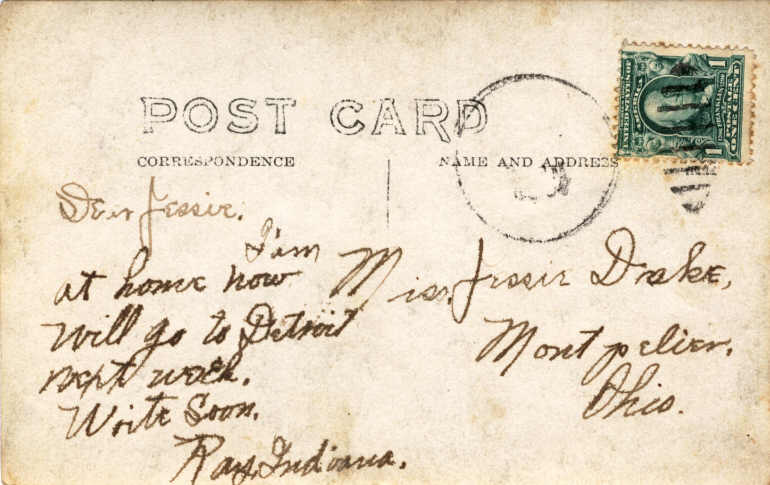 POST CARD
CORRESPONDENCE
NAME AND ADDRESS
Dear Jessie.
I'm
at home now
will go to Detroit
next week.
Write Soon.
Ray, Indiana.
Miss. Jessie Drake,
Montpelier.
Ohio.
1
1
ONE CENT